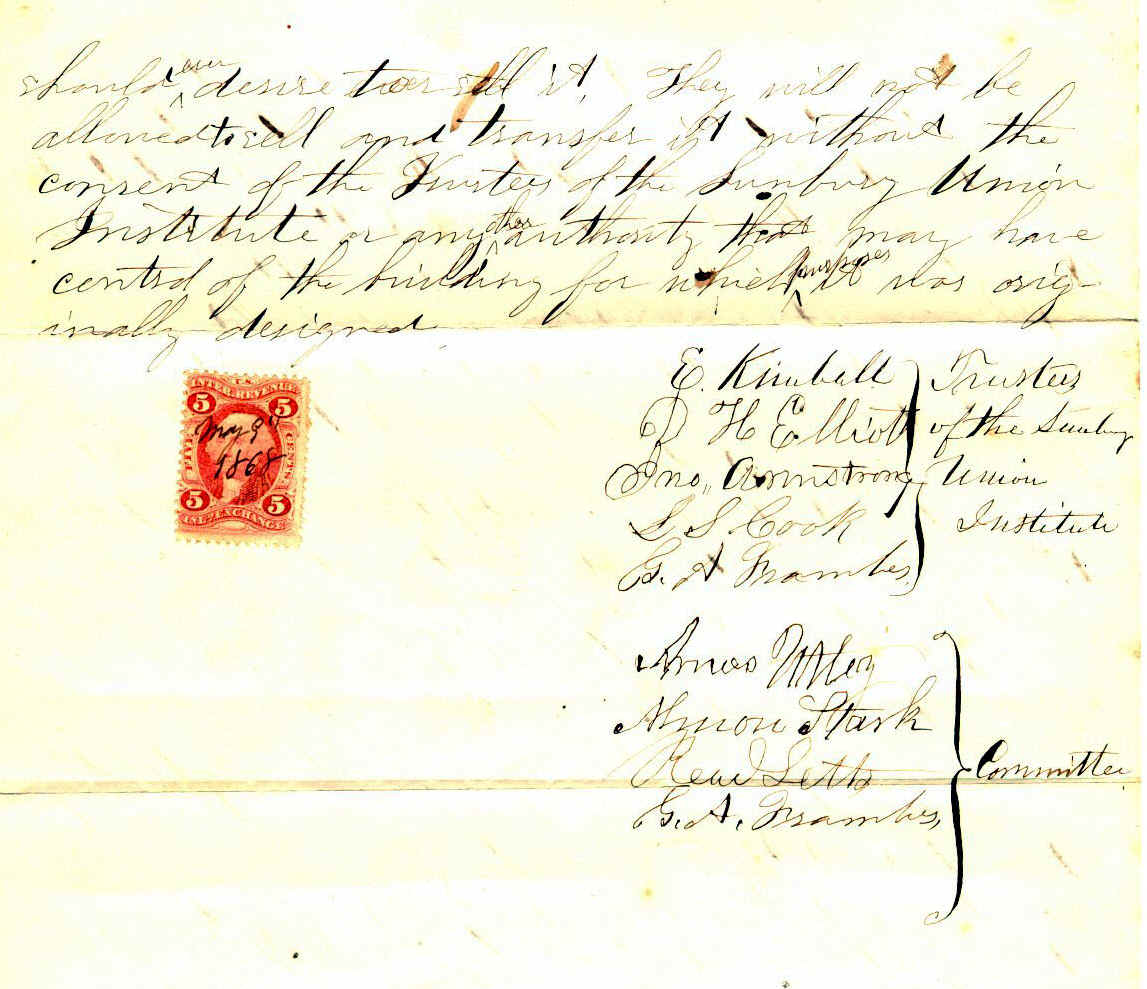 should ever desire to sell it. They will not be
allowed to sell and transfer it without the
consent of the Trustees of the Sunbury Union
Institute or any other authority that may have
control of the building for which purposes it was orig-
inally designed
U.S. INTER. REVENUE
5 5
FIVE CENTS
May 9th
1868
5 5
INL. EXCHANGE
E. Kimball Trustees
H Elliott of the Sunbury
Jno. Armstrong Union
L S Cook Institute
G. A Frambes
Amos Utley
Almon Stark
G. A. Frambes, Committee